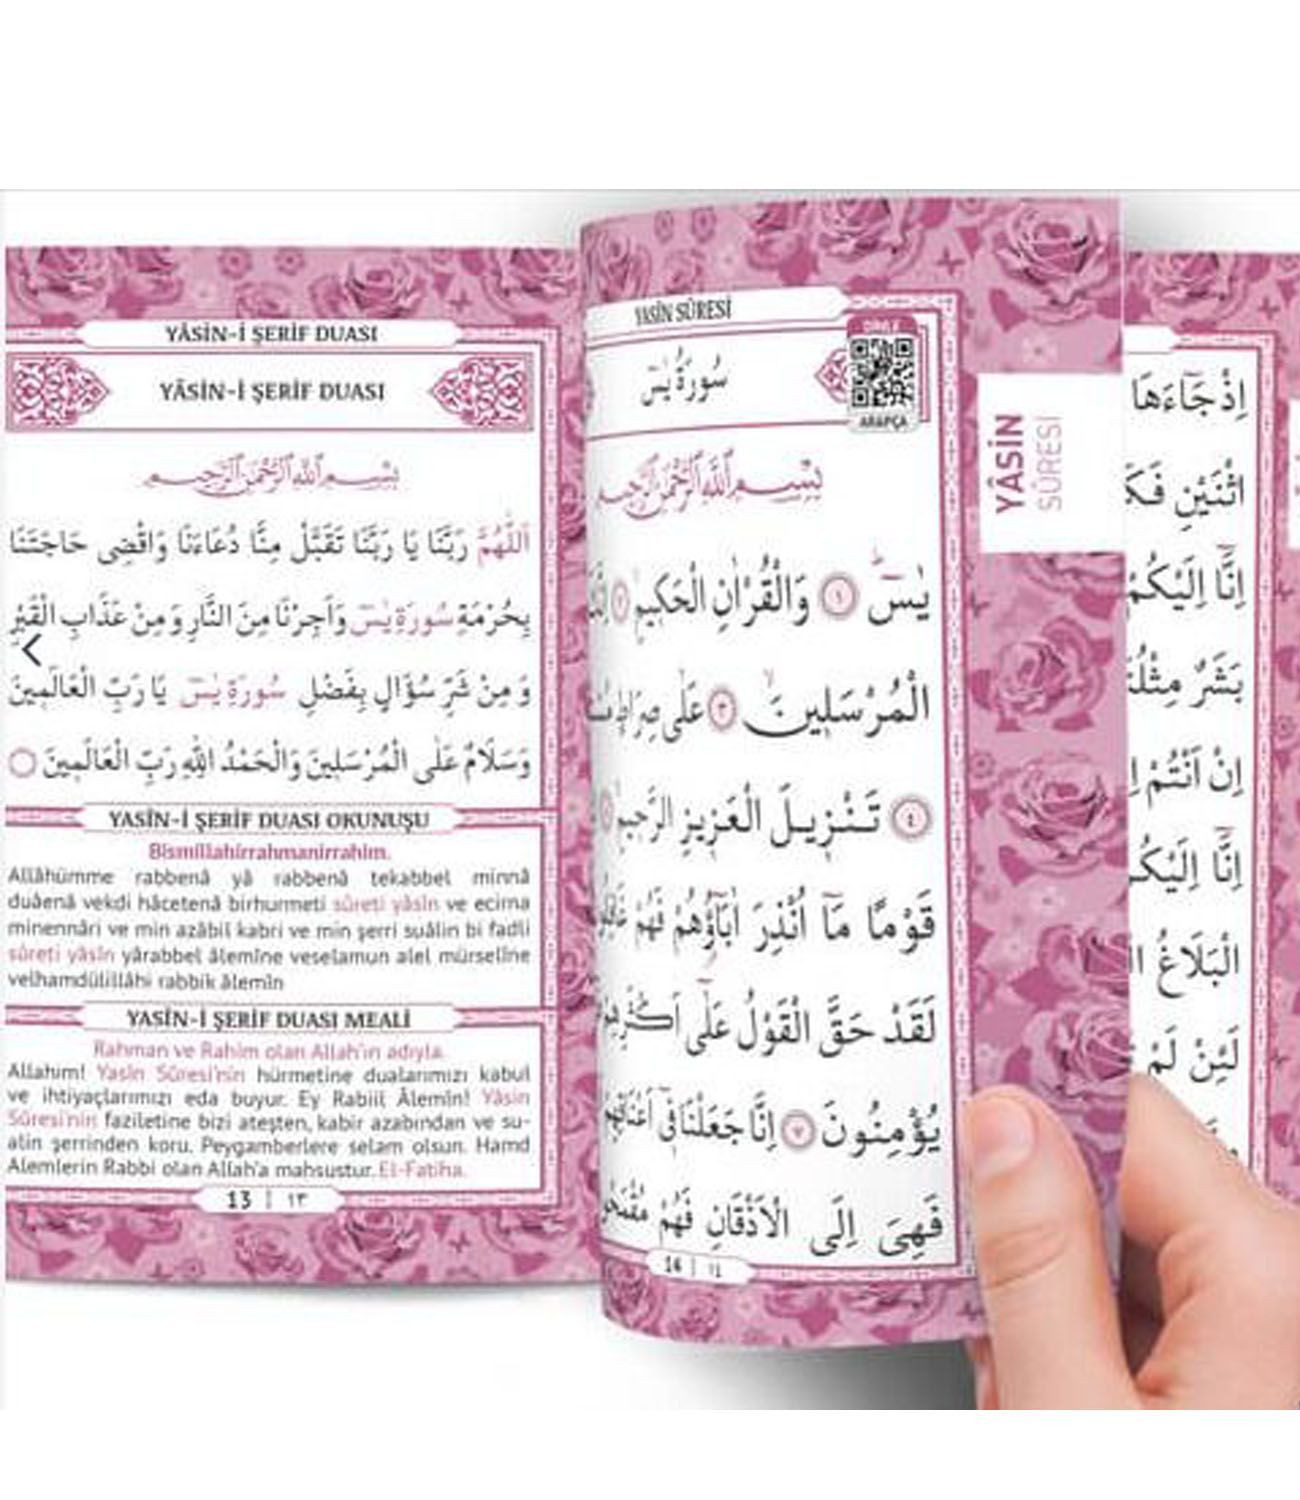 YÂSİN-İ ŞERİF DUASI
YÂSİN-İ ŞERİF DUASI
بِسْمِ اللّٰهِ الرَّحْمٰنِ الرَّحِيمِ
اَللّٰهُمَّ رَبَّنَا يَا رَبَّنَا تَقَبَّلْ مِنَّا دُعَاءَنَا وَاقْضِى حَاجَتَنَا
بِحُرْمَةِ سُورَةِ يٰسٓ وَاَجِرْنَا مِنَ النَّارِ وَمِنْ عَذَابِ الْقَبْرِ
وَ مِنْ شَرِّ سُؤَالٍ بِفَضْلِ سُورَةِ يٰسٓ يَا رَبِّ الْعَالَمِينَ
وَسَلَامٌ عَلَى الْمُرْسَلِينَ وَالْحَمْدُ لِلّٰهِ رَبِّ الْعَالَمِينَ
YASİN-İ ŞERİF DUASI OKUNUŞU
Bismillahirrahmanirrahim.
Allâhümme rabbenâ yâ rabbenâ tekabbel minnâ
duâenâ vekdi hâcetenâ birhurmeti sûreti yâsîn ve ecirna
minennâri ve min azâbil kabri ve min şerri suâlin bi fadli
sûreti yâsîn yârabbel âlemîne veselamun alel mürselîne
velhamdülillâhi rabbik âlemîn
YASİN-İ ŞERİF DUASI MEALİ
Rahman ve Rahim olan Allah'ın adıyla.
Allahım! Yasin Sûresi'nin hürmetine dualarımızı kabul
ve ihtiyaçlarımızı eda buyur. Ey Rabiil Âlemîn! Yâsin
Sûresi'nin faziletine bizi ateşten, kabir azabından ve su-
alin şerrinden koru. Peygamberlere selam olsun. Hamd
Alemlerin Rabbi olan Allah'a mahsustur. El-Fatiha.
13 | ١٣
YASİN SÛRESİ
سُورَةُ يٰسٓ
DİNLE
ARAPÇA
بِسْمِ اللّٰهِ الرَّحْمٰنِ الرَّحِيمِ
يٰسٓ ١ وَالْقُرْاٰنِ الْحَكِيمِ ٢
الْمُرْسَلِينَ ٣ عَلٰى صِرَاطٍ
٤ تَنْزِيلَ الْعَزِيزِ الرَّحِيمِ
قَوْمًا مَٓا اُنْذِرَ اٰبَٓاؤُهُمْ فَهُمْ
لَقَدْ حَقَّ الْقَوْلُ عَلٰٓى اَكْثَرِهِمْ
يُؤْمِنُونَ ٧ اِنَّا جَعَلْنَا فِٓى اَعْنَاقِهِمْ
فَهِىَ اِلَى الْاَذْقَانِ فَهُمْ
YÂSİN
SÛRESİ
اِذْجَٓاءَهَا
اثْنَيْنِ
اِنَّٓا اِلَيْكُمْ
بَشَرٌ
اِنْ اَنْتُمْ
اِنَّٓا
الْبَلَاغُ
لَئِنْ لَمْ